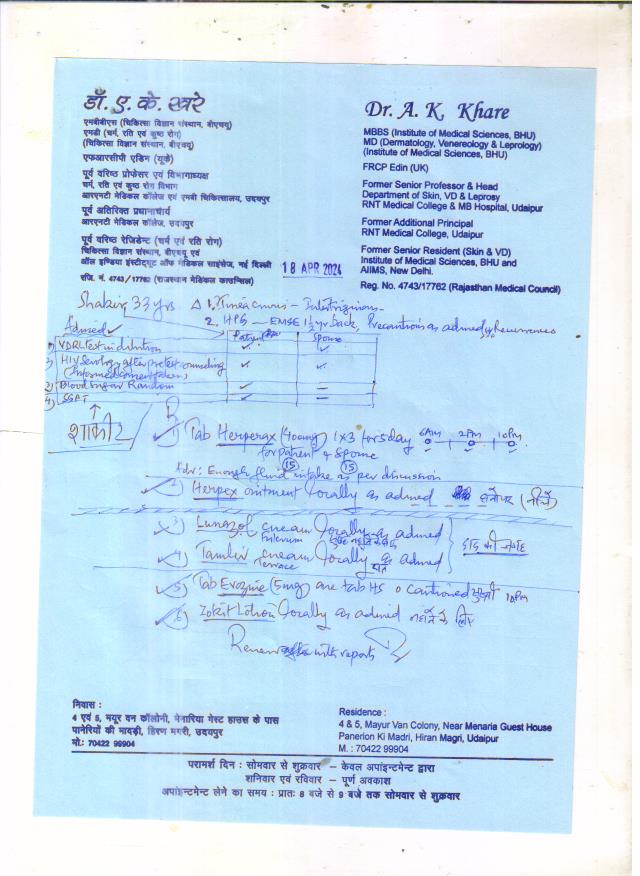 डॉ. ए. के. खरे
एमबीबीएस (चिकित्सा विज्ञान संस्थान, बीएचयू)
एमडी (चर्म, रति एवं कुष्ठ रोग)
(चिकित्सा विज्ञान संस्थान, बीएचयू)
एफआरसीपी एडिन (यूके)
पूर्व वरिष्ठ प्रोफेसर एवं विभागाध्यक्ष
चर्म, रति एवं कुष्ठ रोग विभाग
आरएनटी मेडिकल कॉलेज एवं एमबी चिकित्सालय, उदयपुर
पूर्व अतिरिक्त प्रधानाचार्य
आरएनटी मेडिकल कॉलेज, उदयपुर
पूर्व वरिष्ठ रेजिडेन्ट (चर्म एवं रति रोग)
चिकित्सा विज्ञान संस्थान, बीएचयू एवं
ऑल इण्डिया इंस्टीट्यूट ऑफ मेडिकल साइंसेज, नई दिल्ली
रजि. नं. 4743/17762 (राजस्थान मेडिकल काउन्सिल)
Dr. A. K. Khare
MBBS (Institute of Medical Sciences, BHU)
MD (Dermatology, Venereology & Leprology)
(Institute of Medical Sciences, BHU)
FRCP Edin (UK)
Former Senior Professor & Head
Department of Skin, VD & Leprosy
RNT Medical College & MB Hospital, Udaipur
Former Additional Principal
RNT Medical College, Udaipur
Former Senior Resident (Skin & VD)
Institute of Medical Sciences, BHU and
AIIMS, New Delhi.
Reg. No. 4743/17762 (Rajasthan Medical Council)
18 APR 2024
33 yrs Δ 1. Tinea cruris -
2. HPG — Precautions as advised Recurrences
Advised ✓
Patient Spouse
1) VDRL Test in dilution ✓ ✓
HIV Serology after pretest counseling ✓ ✓
(Informed consent taken)
Blood Sugar Random ✓ =
4) SGPT ✓ =
शाकीर
1) Tab Herperax (400mg) 1x3 for 5 day 6AM 2PM 10PM
for patient & Spouse
(15) (15)
Adv: Enough fluid intake as per discussion
2) Herpex ointment locally as advised
3) cream locally as advised
4) cream locally as advised
5) Tab (5mg) one tab HS 10PM
6) Lotion locally as advised
Review with reports
निवास :
4 एवं 5, मयूर वन कॉलोनी, मेनारिया गेस्ट हाउस के पास
पानेरियों की मादड़ी, हिरण मगरी, उदयपुर
मो.: 70422 99904
Residence :
4 & 5, Mayur Van Colony, Near Menaria Guest House
Panerion Ki Madri, Hiran Magri, Udaipur
M. : 70422 99904
परामर्श दिन : सोमवार से शुक्रवार – केवल अपांइन्टमेन्ट द्वारा
शनिवार एवं रविवार – पूर्ण अवकाश
अपांइन्टमेन्ट लेने का समय : प्रातः 8 बजे से 9 बजे तक सोमवार से शुक्रवार